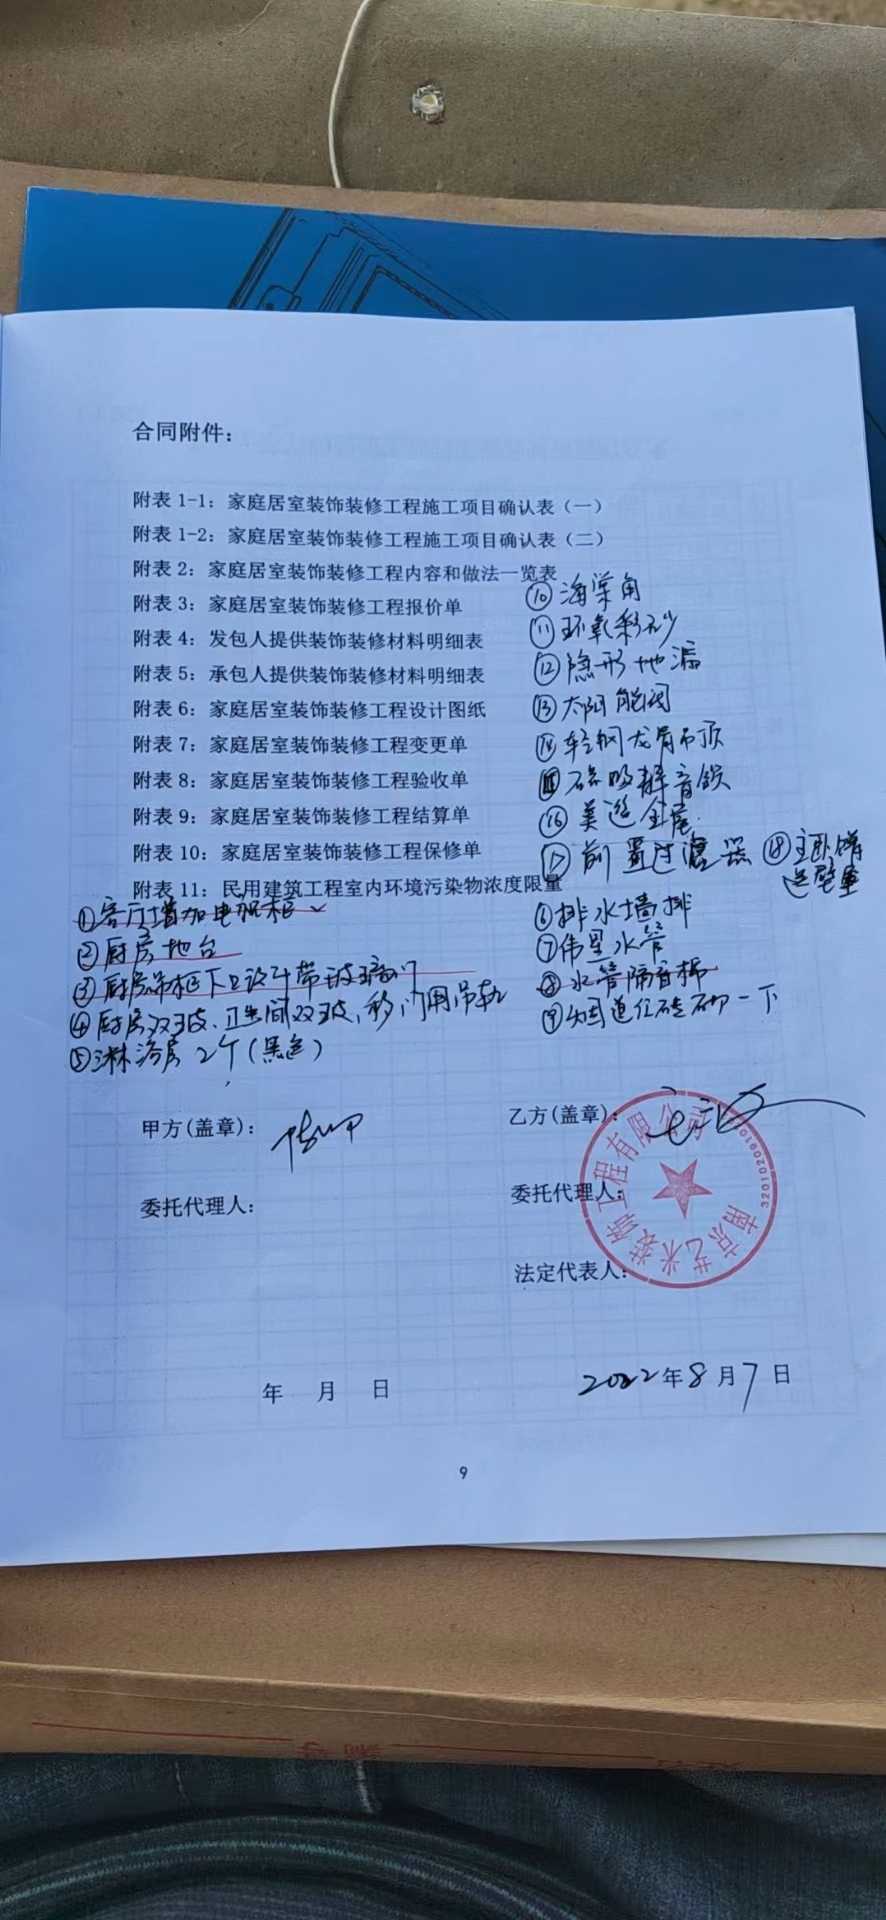 合同附件：
附表 1-1：家庭居室装饰装修工程施工项目确认表（一）
附表 1-2：家庭居室装饰装修工程施工项目确认表（二）
附表 2：家庭居室装饰装修工程内容和做法一览表
附表 3：家庭居室装饰装修工程报价单
附表 4：发包人提供装饰装修材料明细表
附表 5：承包人提供装饰装修材料明细表
附表 6：家庭居室装饰装修工程设计图纸
附表 7：家庭居室装饰装修工程变更单
附表 8：家庭居室装饰装修工程验收单
附表 9：家庭居室装饰装修工程结算单
附表 10：家庭居室装饰装修工程保修单
附表 11：民用建筑工程室内环境污染物浓度限量
⑩海棠角
⑪环氧彩砂
⑫隐形地漏
⑬太阳能阀
⑭轻钢龙骨吊顶
磁吸静音锁
⑯美巡全屋
⑰前置过滤器
⑱主卧
送壁
①客厅增加电视柜
②厨房地台
③厨房吊柜下口设计带玻璃门
④厨房双玻、卫生间双玻，移门用吊轨
⑤淋浴房2个（黑色）
⑥排水墙排
⑦伟星水管
⑧水管隔音棉
⑨砖切一下
甲方(盖章)：
乙方(盖章)：
委托代理人：
委托代理人：
法定代表人：
南京艺术装饰工程有限公司
年 月 日
2022年8月7日
9